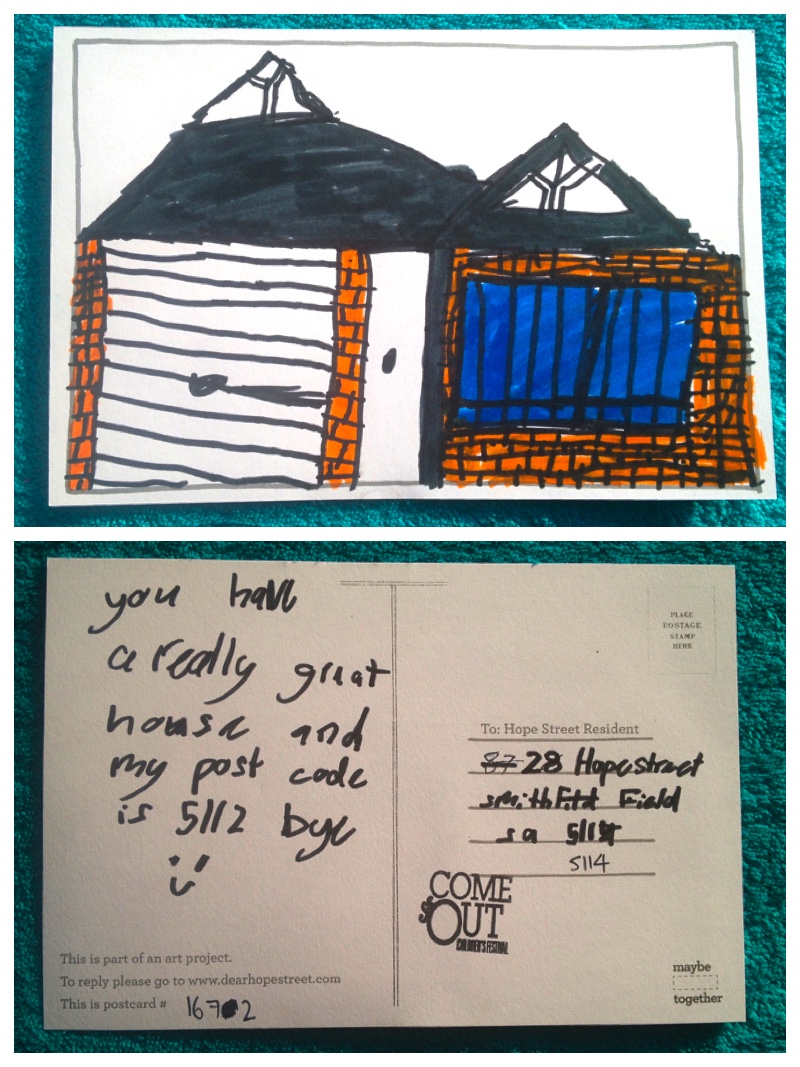 you have
a really great
house and
my post code
is 5112 bye
This is part of an art project.
To reply please go to www.dearhopestreet.com
This is postcard # 1672
PLACE
POSTAGE
STAMP
HERE
To: Hope Street Resident
87 28 Hope street
smithFild Field
sa 511
5114
COME
OUT
CHILDREN'S FESTIVAL
maybe
together